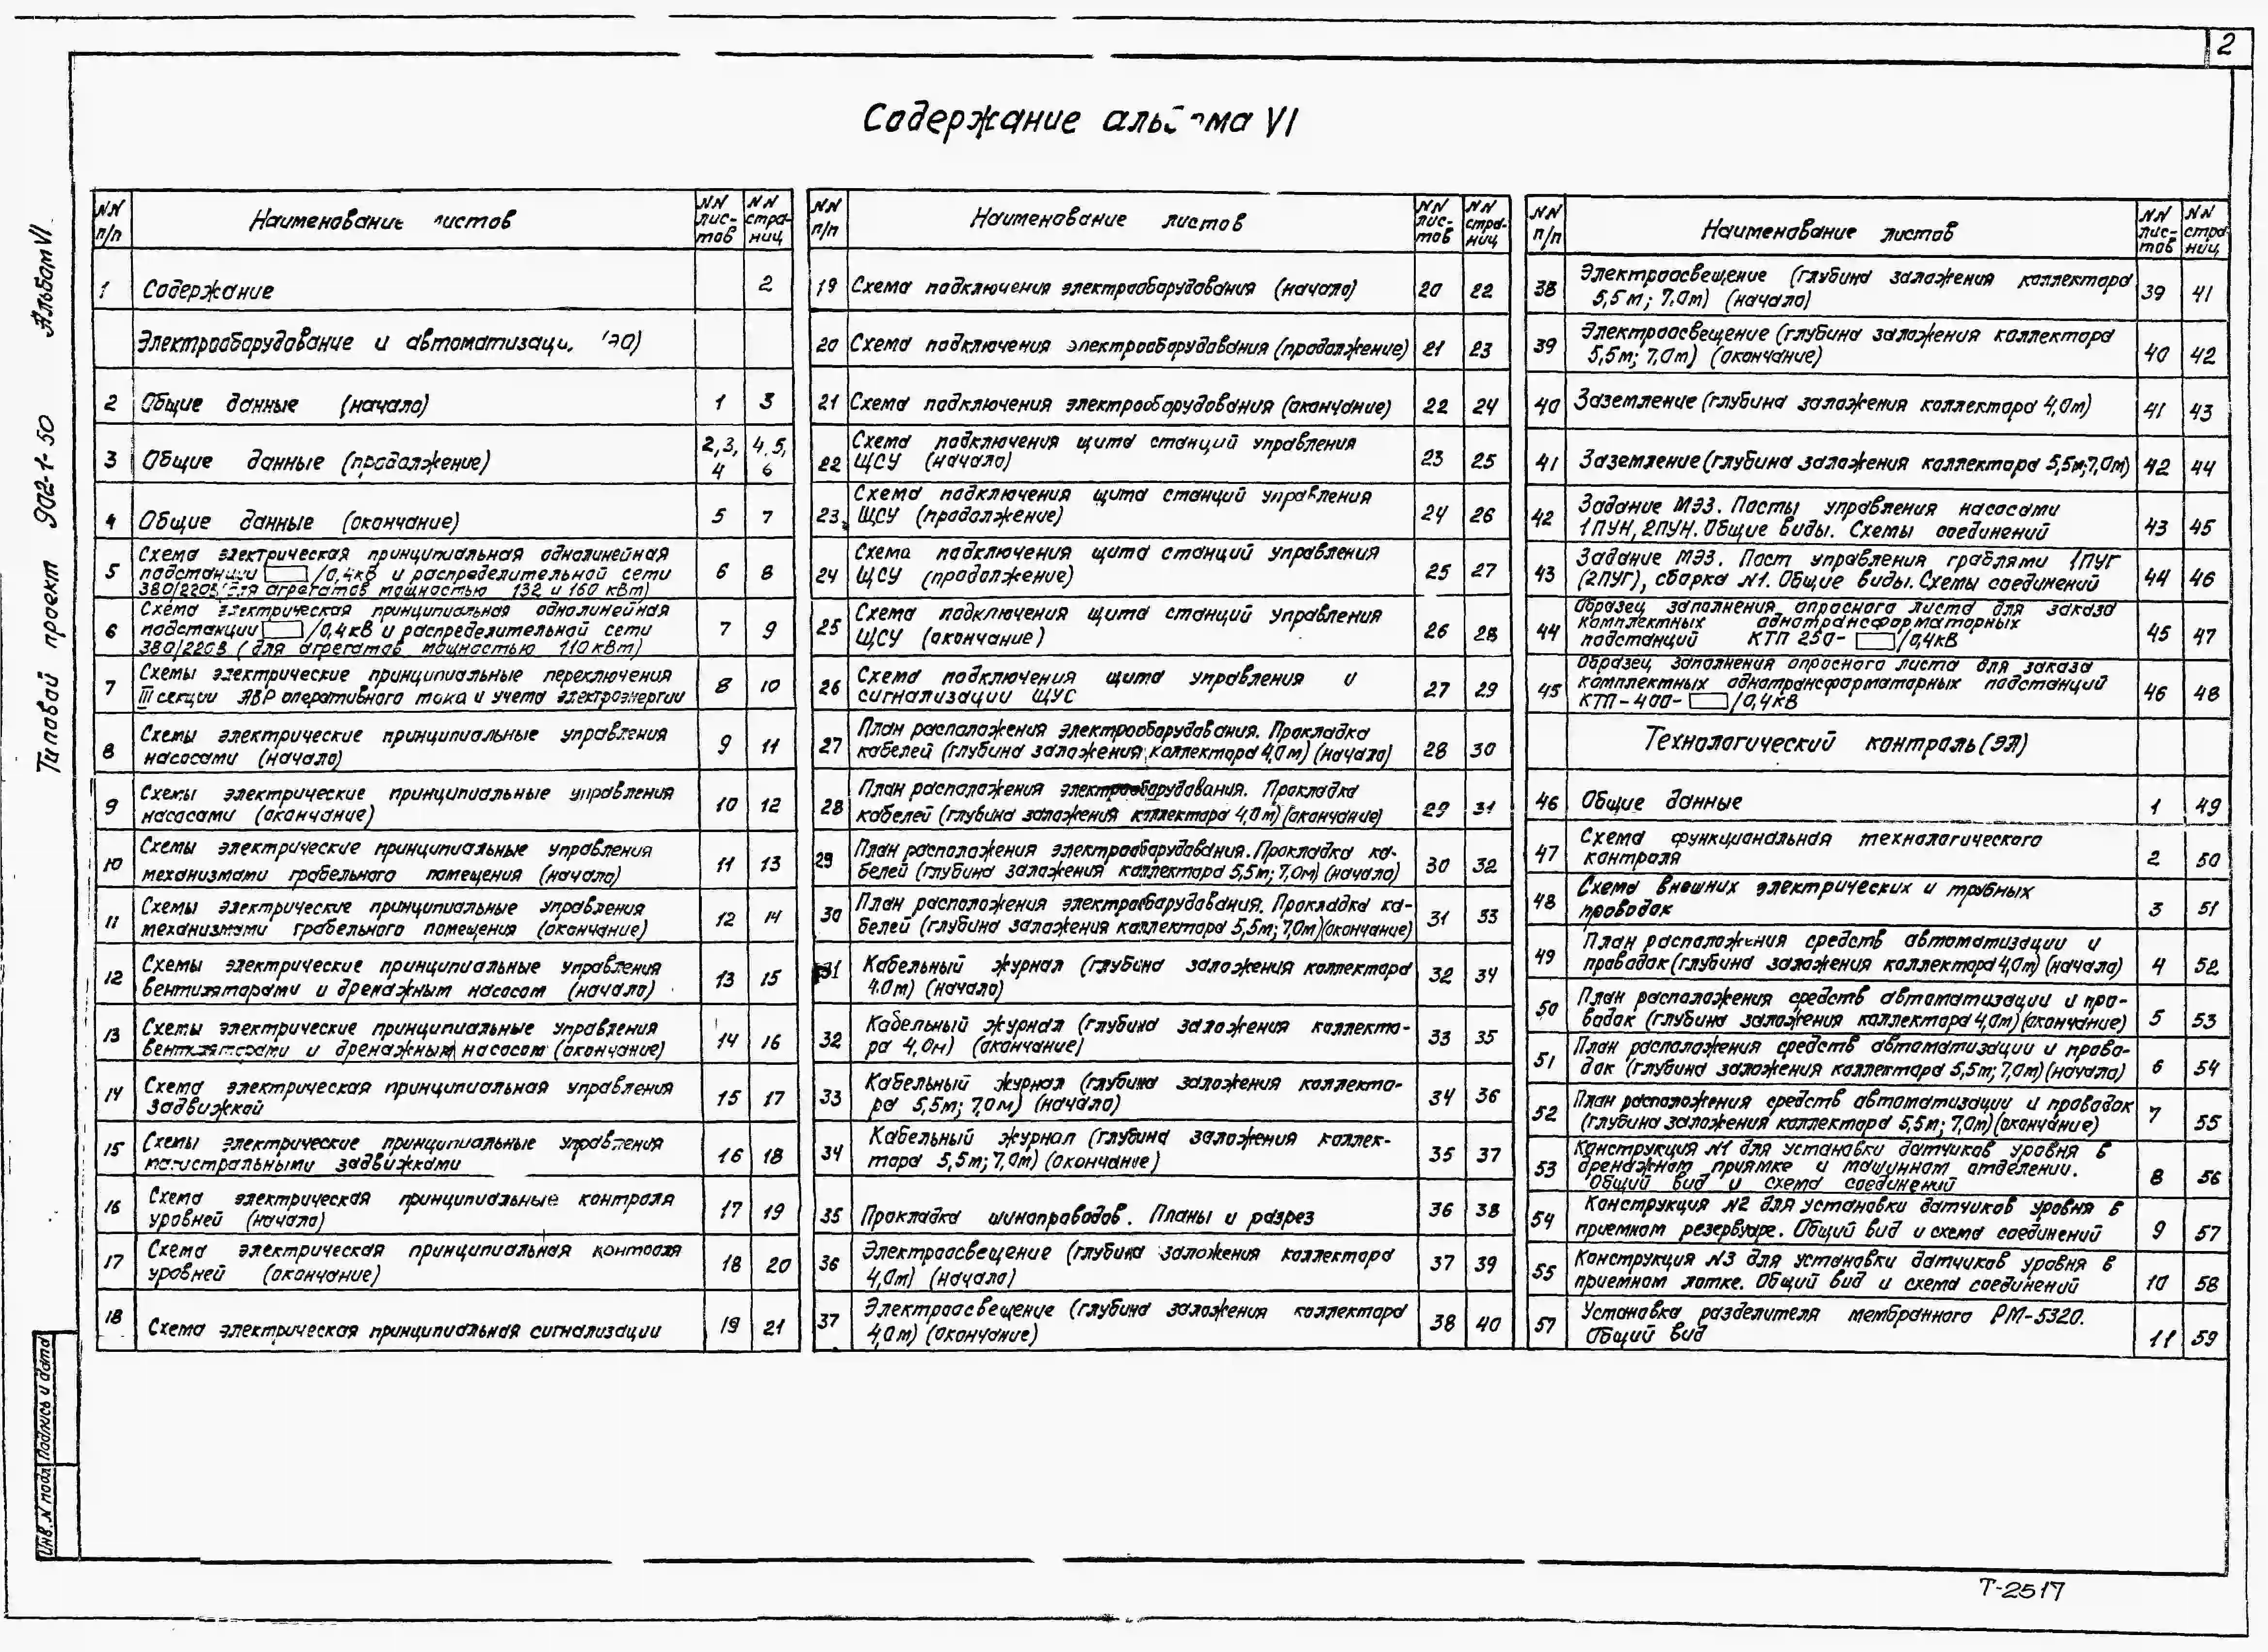 2
Содержание альбома VI
Типовой проект 902-1-50 Альбом VI
NN п/п
Наименование листов
NN лис-тов
NN стра-ниц
1 Содержание 2
Электрооборудование и автоматизаци
2 Общие данные (начало) 1 3
3 Общие данные (продолжение) 2,3,4 4,5,6
4 Общие данные (окончание) 5 7
Схема электрическая принципиальная однолинейная
5 подстанции /0,4кВ и распределительной сети 6 8
380/220В для агрегатов мощностью 132 и 160 кВт)
Схема электрическая принципиальная однолинейная
6 подстанции /0,4кВ и распределительной сети 7 9
380/220В (для агрегатов мощностью 110кВт)
Схемы электрические принципиальные переключения
7 III секции АВР оперативного тока и учета электроэнергии 8 10
Схемы электрические принципиальные управления
8 насосами (начало) 9 11
Схемы электрические принципиальные управления
9 насосами (окончание) 10 12
Схемы электрические принципиальные управления
10 механизмами грабельного помещения (начало) 11 13
Схемы электрические принципиальные управления
11 механизмами грабельного помещения (окончание) 12 14
Схемы электрические принципиальные управления
12 вентиляторами и дренажным насосом (начало) 13 15
13 Схемы электрические принципиальные управления
вентиляторами и дренажным насосом (окончание) 14 16
14 Схема электрическая принципиальная управления
задвижкой 15 17
15 Схемы электрические принципиальные управления
магистральными задвижками 16 18
16 Схема электрическая принципиальные контроля
уровней (начало) 17 19
17 Схема электрическая принципиальная контроля
уровней (окончание) 18 20
18 Схема электрическая принципиальная сигнализации 19 21
NN п/п
Наименование листов
NN лис-тов
NN стра-ниц
19 Схема подключения электрооборудования (начало) 20 22
20 Схема подключения электрооборудования (продолжение) 21 23
21 Схема подключения электрооборудования (окончание) 22 24
Схема подключения щита станций управления
22 ЩСУ (начало) 23 25
Схема подключения щита станций управления
23 ЩСУ (продолжение) 24 26
Схема подключения щита станций управления
24 ЩСУ (продолжение) 25 27
Схема подключения щита станций управления
25 ЩСУ (окончание) 26 28
Схема подключения щита управления и
26 сигнализации ЩУС 27 29
План расположения электрооборудования. Прокладка
27 кабелей (глубина заложения коллектора 4,0м) (начало) 28 30
План расположения электрооборудования. Прокладка
28 кабелей (глубина заложения коллектора 4,0м) (окончание) 29 31
29 План расположения электрооборудования. Прокладка ка-
белей (глубина заложения коллектора 5,5м; 7,0м) (начало) 30 32
30 План расположения электрооборудования. Прокладка ка-
белей (глубина заложения коллектора 5,5м; 7,0м) (окончание) 31 33
31 Кабельный журнал (глубина заложения коллектора
4.0м) (начало) 32 34
Кабельный журнал (глубина заложения коллекто-
32 ра 4,0м) (окончание) 33 35
Кабельный журнал (глубина заложения коллекто-
33 ра 5,5м; 7,0м) (начало) 34 36
Кабельный журнал (глубина заложения коллек-
34 тора 5,5м; 7,0м) (окончание) 35 37
35 Прокладка шинопроводов. Планы и разрез 36 38
36 Электроосвещение (глубина заложения коллектора
4,0м) (начало) 37 39
37 Электроосвещение (глубина заложения коллектора
4,0м) (окончание) 38 40
NN п/п
Наименование листов
NN лис-тов
NN стра-ниц
38 Электроосвещение (глубина заложения коллектора
5,5м; 7,0м) (начало) 39 41
39 Электроосвещение (глубина заложения коллектора
5,5м; 7,0м) (окончание) 40 42
40 Заземление (глубина заложения коллектора 4,0м) 41 43
41 Заземление (глубина заложения коллектора 5,5м; 7,0м) 42 44
Задание МЭЗ. Посты управления насосами
42 1ПУН, 2ПУН. Общие виды. Схемы соединений 43 45
Задание МЭЗ. Пост управления граблями 1ПУГ
43 (2ПУГ), сборка N1. Общие виды. Схемы соединений 44 46
Образец заполнения опросного листа для заказа
44 комплектных однотрансформаторных 45 47
подстанций КТП 250- /0,4кВ
Образец заполнения опросного листа для заказа
45 комплектных однотрансформаторных подстанций 46 48
КТП-400- /0,4кВ
Технологический контроль (ЭЛ)
46 Общие данные 1 49
Схема функциональная технологического
47 контроля 2 50
Схема внешних электрических и трубных
48 проводок 3 51
49 План расположения средств автоматизации и
проводок (глубина заложения коллектора 4,0м) (начало) 4 52
50 План расположения средств автоматизации и про-
водок (глубина заложения коллектора 4,0м) (окончание) 5 53
51 План расположения средств автоматизации и прово-
док (глубина заложения коллектора 5,5м; 7,0м) (начало) 6 54
52 План расположения средств автоматизации и проводок
(глубина заложения коллектора 5,5м; 7,0м) (окончание) 7 55
Конструкция N1 для установки датчиков уровня в
53 дренажном приямке и машинном отделении. 8 56
Общий вид и схема соединений
54 Конструкция N2 для установки датчиков уровня в
приемном резервуаре. Общий вид и схема соединений 9 57
55 Конструкция N3 для установки датчиков уровня в
приемном лотке. Общий вид и схема соединений 10 58
57 Установка разделителя мембранного РМ-5320.
Общий вид 11 59
Инв. N подл Подпись и дата
Т-2517